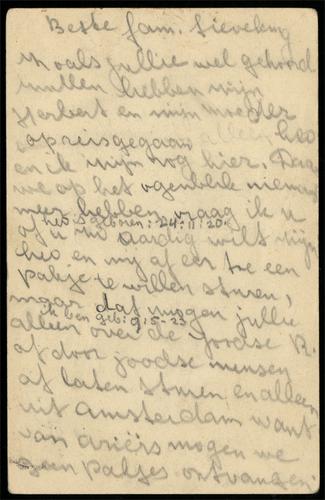 Beste fam. Sieveking
Zoals jullie wel gehoord
zullen hebben zijn
Herbert en mijn moeder
op reis gegaan alleen heo
en ik zijn nog hier. Daar
we op het ogenblik niemand
meer hebben, vraag ik u
heo is geboren: 24:11:20.
of u zo aardig wilt zijn
heo en my af en toe een
pakje te willen sturen,
maar dat mogen jullie
ik ben geb: 9:5-23
alleen over de Joodse R.
of door joodse mensen
af laten sturen, en alleen
uit amsterdam want
van ariërs mogen we
geen pakjes ontvangen.